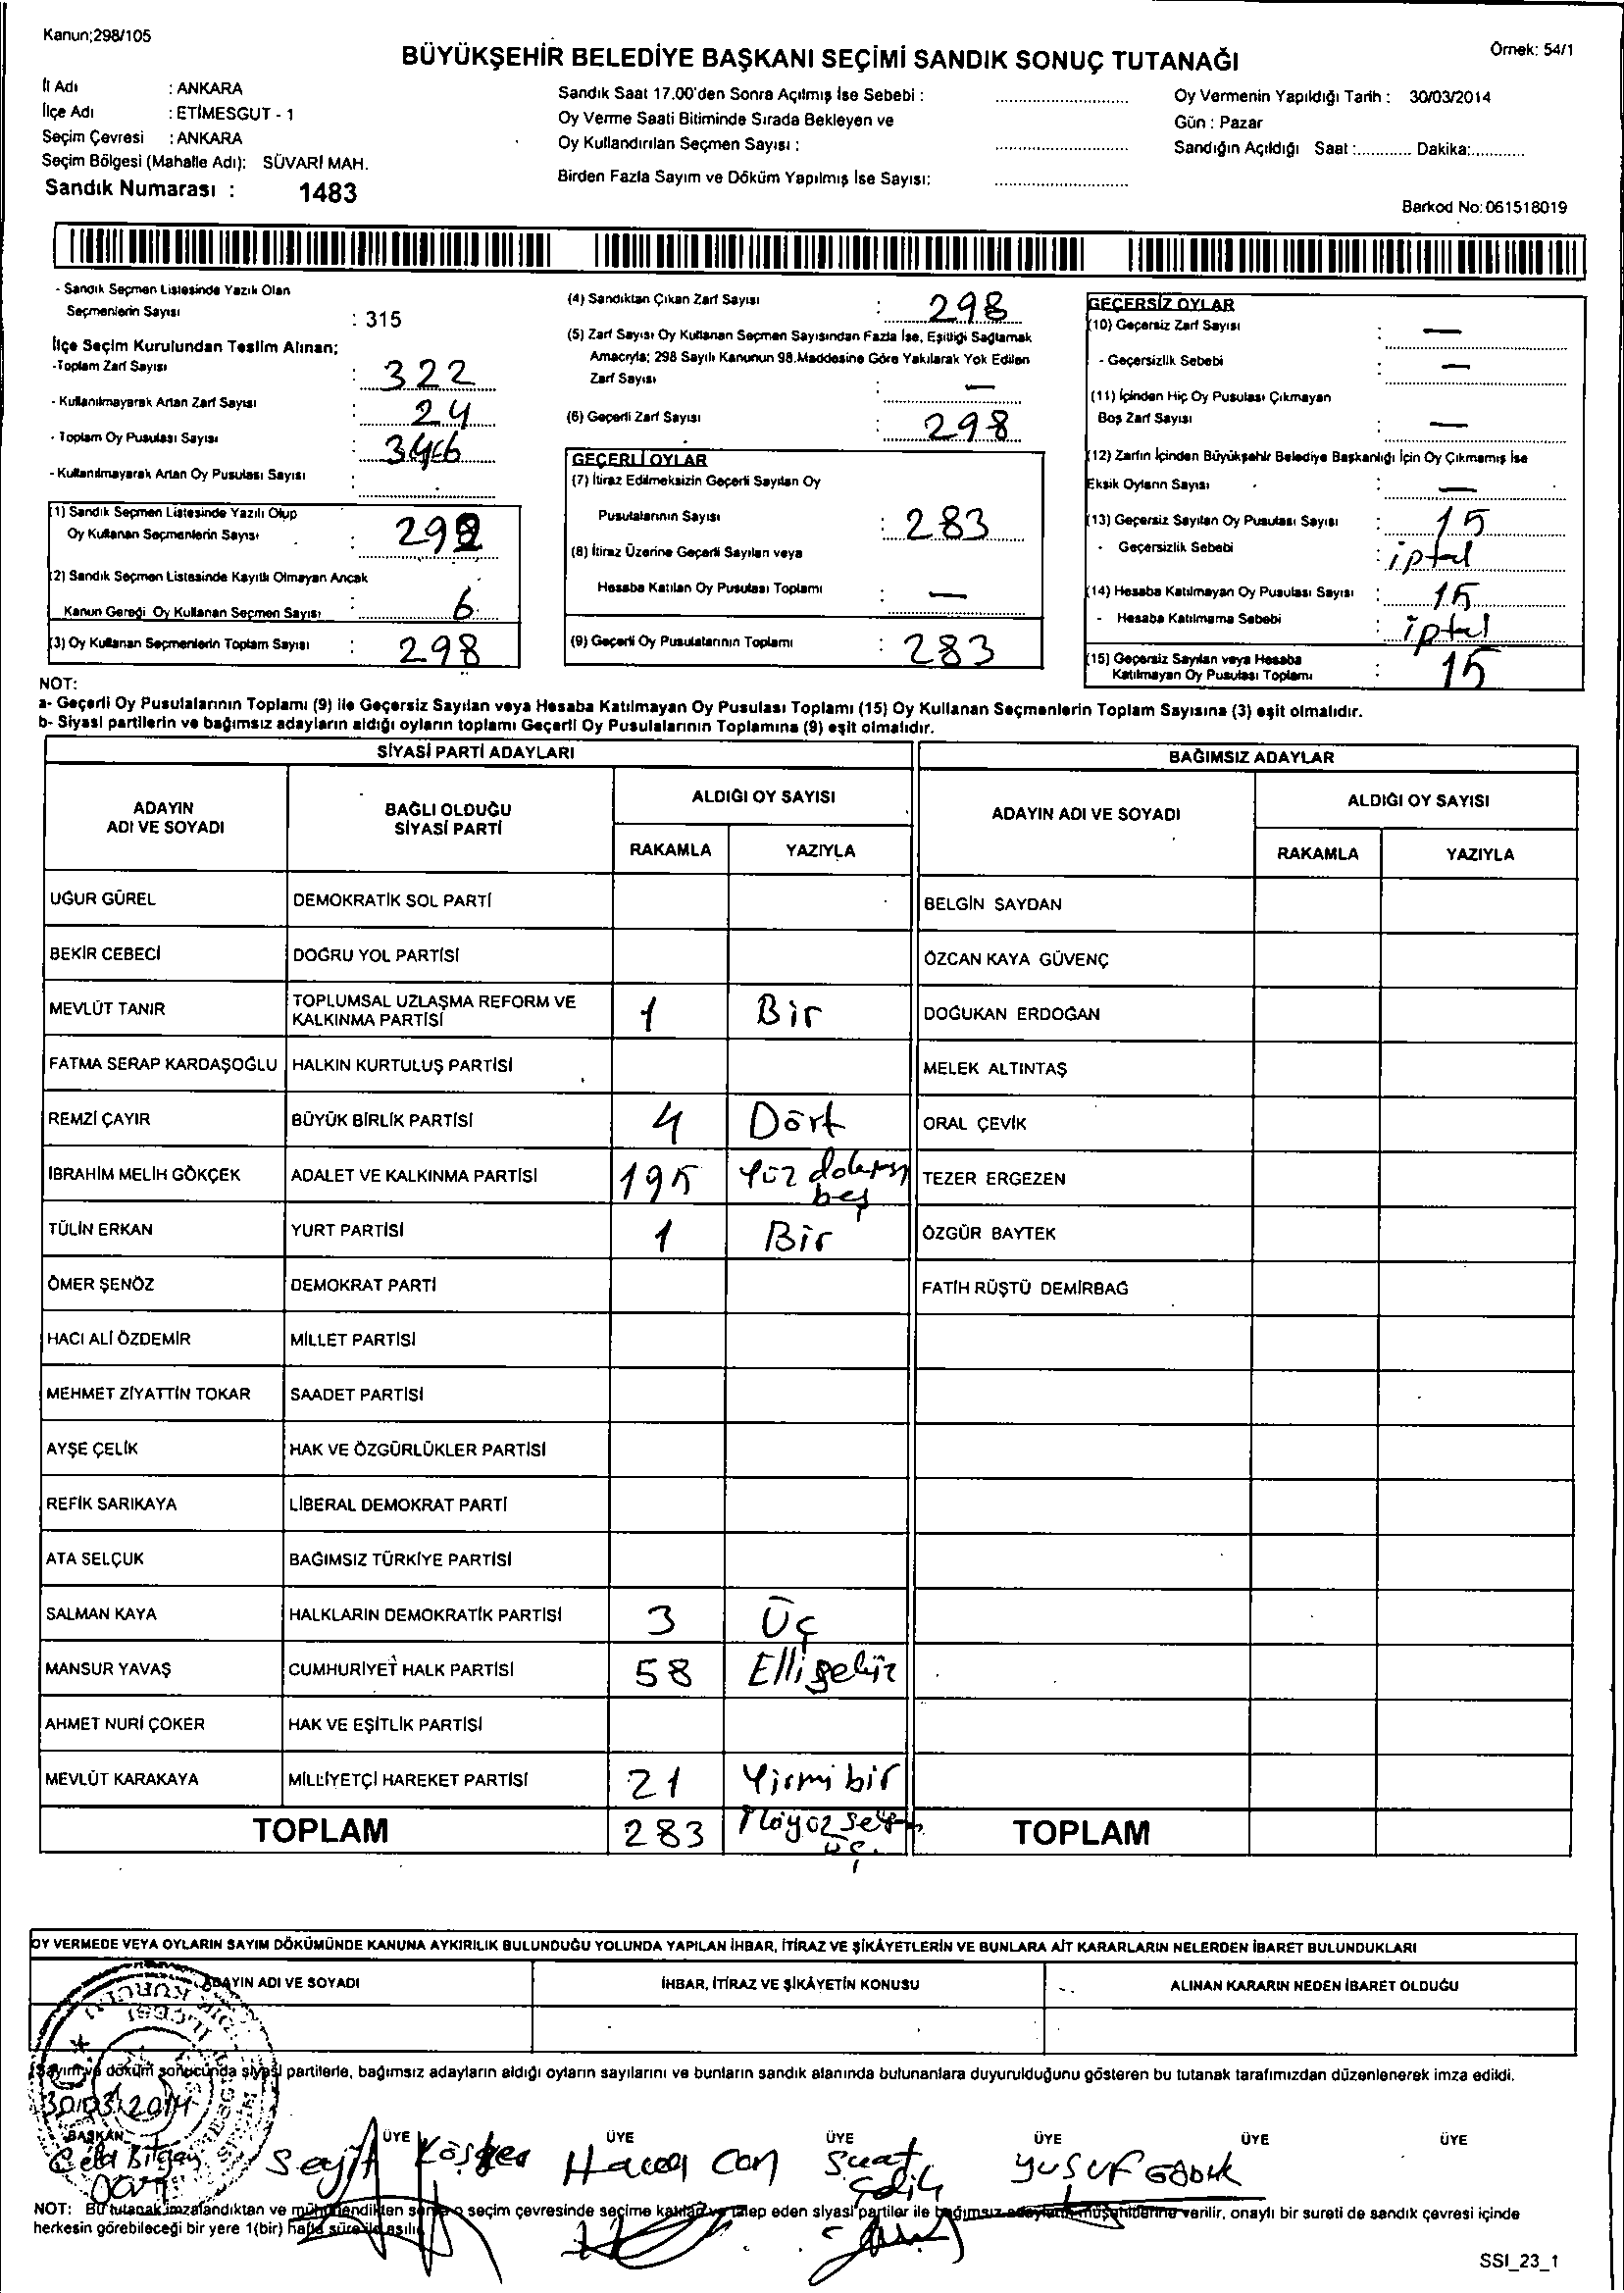 Kanun;298/105
BÜYÜKŞEHİR BELEDİYE BAŞKANI SEÇİMİ SANDIK SONUÇ TUTANAĞI
Örnek: 54/1
İl Adı : ANKARA
İlçe Adı : ETİMESGUT - 1
Seçim Çevresi : ANKARA
Seçim Bölgesi (Mahalle Adı): SÜVARİ MAH.
Sandık Numarası : 1483
Sandık Saat 17.00'den Sonra Açılmış İse Sebebi : ............................
Oy Verme Saati Bitiminde Sırada Bekleyen ve
Oy Kullandırılan Seçmen Sayısı : ............................
Birden Fazla Sayım ve Döküm Yapılmış İse Sayısı: ............................
Oy Vermenin Yapıldığı Tarih : 30/03/2014
Gün : Pazar
Sandığın Açıldığı Saat :............ Dakika:............
Barkod No: 061518019
- Sandık Seçmen Listesinde Yazılı Olan
Seçmenlerin Sayısı : 315
İlçe Seçim Kurulundan Teslim Alınan;
-Toplam Zarf Sayısı : 322
- Kullanılmayarak Artan Zarf Sayısı : 24
- Toplam Oy Pusulası Sayısı :
- Kullanılmayarak Artan Oy Pusulası Sayısı :
(1) Sandık Seçmen Listesinde Yazılı Olup
Oy Kullanan Seçmenlerin Sayısı :
(2) Sandık Seçmen Listesinde Kayıtlı Olmayan Ancak
Kanun Gereği Oy Kullanan Seçmen Sayısı : 6
(3) Oy Kullanan Seçmenlerin Toplam Sayısı : 298
(4) Sandıktan Çıkan Zarf Sayısı : 298
(5) Zarf Sayısı Oy Kullanan Seçmen Sayısından Fazla İse, Eşitliği Sağlamak
Amacıyla; 298 Sayılı Kanunun 98.Maddesine Göre Yakılarak Yok Edilen
Zarf Sayısı : —
(6) Geçerli Zarf Sayısı : 298
GEÇERLİ OYLAR
(7) İtiraz Edilmeksizin Geçerli Sayılan Oy
Pusulalarının Sayısı : 283
(8) İtiraz Üzerine Geçerli Sayılan veya
Hesaba Katılan Oy Pusulası Toplamı : —
(9) Geçerli Oy Pusulalarının Toplamı : 283
GEÇERSİZ OYLAR
(10) Geçersiz Zarf Sayısı : —
- Geçersizlik Sebebi : —
(11) İçinden Hiç Oy Pusulası Çıkmayan
Boş Zarf Sayısı : —
(12) Zarfın İçinden Büyükşehir Belediye Başkanlığı İçin Oy Çıkmamış İse
Eksik Oyların Sayısı : —
(13) Geçersiz Sayılan Oy Pusulası Sayısı : 15
- Geçersizlik Sebebi : iptal
(14) Hesaba Katılmayan Oy Pusulası Sayısı : 15
- Hesaba Katılmama Sebebi : iptal
(15) Geçersiz Sayılan veya Hesaba
Katılmayan Oy Pusulası Toplamı : 15
NOT:
a- Geçerli Oy Pusulalarının Toplamı (9) ile Geçersiz Sayılan veya Hesaba Katılmayan Oy Pusulası Toplamı (15) Oy Kullanan Seçmenlerin Toplam Sayısına (3) eşit olmalıdır.
b- Siyasi partilerin ve bağımsız adayların aldığı oyların toplamı Geçerli Oy Pusulalarının Toplamına (9) eşit olmalıdır.
SİYASİ PARTİ ADAYLARI
BAĞIMSIZ ADAYLAR
ADAYIN ADI VE SOYADI
BAĞLI OLDUĞU SİYASİ PARTİ
ALDIĞI OY SAYISI
RAKAMLA YAZIYLA
ADAYIN ADI VE SOYADI
ALDIĞI OY SAYISI
RAKAMLA YAZIYLA
UĞUR GÜREL DEMOKRATİK SOL PARTİ BELGİN SAYDAN
BEKİR CEBECİ DOĞRU YOL PARTİSİ ÖZCAN KAYA GÜVENÇ
MEVLÜT TANIR TOPLUMSAL UZLAŞMA REFORM VE KALKINMA PARTİSİ 1 Bir DOĞUKAN ERDOĞAN
FATMA SERAP KARDAŞOĞLU HALKIN KURTULUŞ PARTİSİ MELEK ALTINTAŞ
REMZİ ÇAYIR BÜYÜK BİRLİK PARTİSİ 4 Dört ORAL ÇEVİK
İBRAHİM MELİH GÖKÇEK ADALET VE KALKINMA PARTİSİ 195 Yüz beş TEZER ERGEZEN
TÜLİN ERKAN YURT PARTİSİ 1 Bir ÖZGÜR BAYTEK
ÖMER ŞENÖZ DEMOKRAT PARTİ FATİH RÜŞTÜ DEMİRBAĞ
HACI ALİ ÖZDEMİR MİLLET PARTİSİ
MEHMET ZİYATTİN TOKAR SAADET PARTİSİ
AYŞE ÇELİK HAK VE ÖZGÜRLÜKLER PARTİSİ
REFİK SARIKAYA LİBERAL DEMOKRAT PARTİ
ATA SELÇUK BAĞIMSIZ TÜRKİYE PARTİSİ
SALMAN KAYA HALKLARIN DEMOKRATİK PARTİSİ 3 Üç
MANSUR YAVAŞ CUMHURİYET HALK PARTİSİ 58 Elli
AHMET NURİ ÇOKER HAK VE EŞİTLİK PARTİSİ
MEVLÜT KARAKAYA MİLLİYETÇİ HAREKET PARTİSİ 21 Yirmi bir
TOPLAM 283 üç. TOPLAM
OY VERMEDE VEYA OYLARIN SAYIM DÖKÜMÜNDE KANUNA AYKIRILIK BULUNDUĞU YOLUNDA YAPILAN İHBAR, İTİRAZ VE ŞİKÂYETLERİN VE BUNLARA AİT KARARLARIN NELERDEN İBARET BULUNDUKLARI
ADAYIN ADI VE SOYADI İHBAR, İTİRAZ VE ŞİKÂYETİN KONUSU ALINAN KARARIN NEDEN İBARET OLDUĞU
Sayım ve döküm sonucunda siyasi partilerle, bağımsız adayların aldığı oyların sayılarını ve bunların sandık alanında bulunanlara duyurulduğunu gösteren bu tutanak tarafımızdan düzenlenerek imza edildi.
30/03/2014
BAŞKAN ÜYE ÜYE ÜYE ÜYE ÜYE ÜYE
Seyit Can Suat Yusuf
NOT: Bu tutanak imzalandıktan ve mühürlendikten sonra o seçim çevresinde seçime katılan ve talep eden siyasi partiler ile bağımsız adayların müşahitlerine verilir, onaylı bir sureti de sandık çevresi içinde
herkesin görebileceği bir yere 1(bir) hafta süre ile asılır.
SSI_23_1